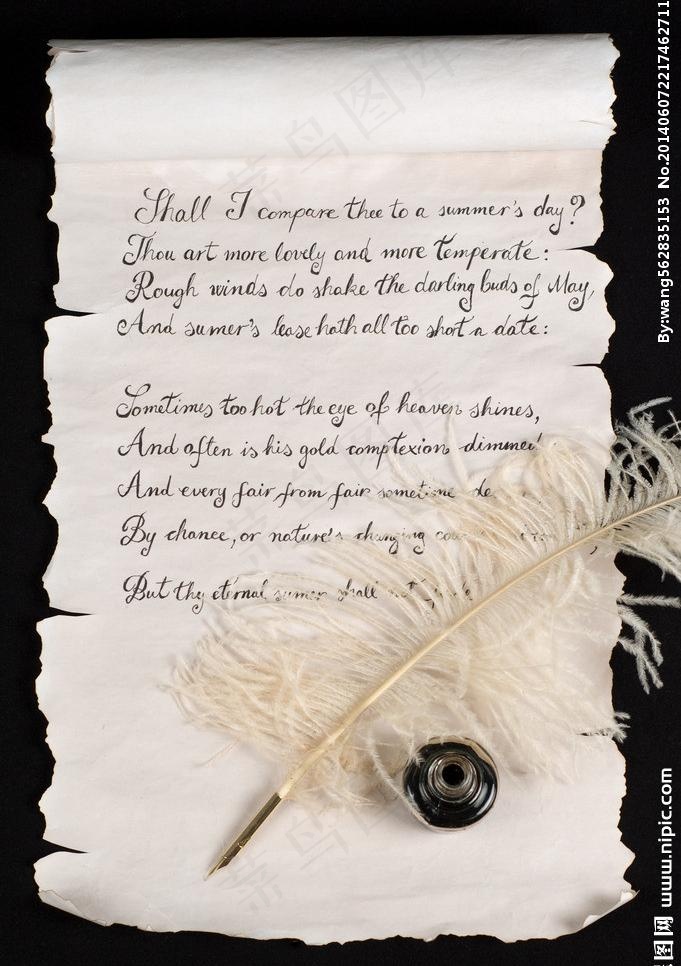 Shall I compare thee to a summer's day?
Thou art more lovely and more temperate:
Rough winds do shake the darling buds of May,
And sumer's lease hath all too shot a date:
Sometimes too hot the eye of heaven shines,
And often is his gold complexion dimmed
And every fair from fair sometime
By chance, or nature's changing
But thy eternal sumer shall not
By:wang562835153 No.20140607221746271
www.nipic.com